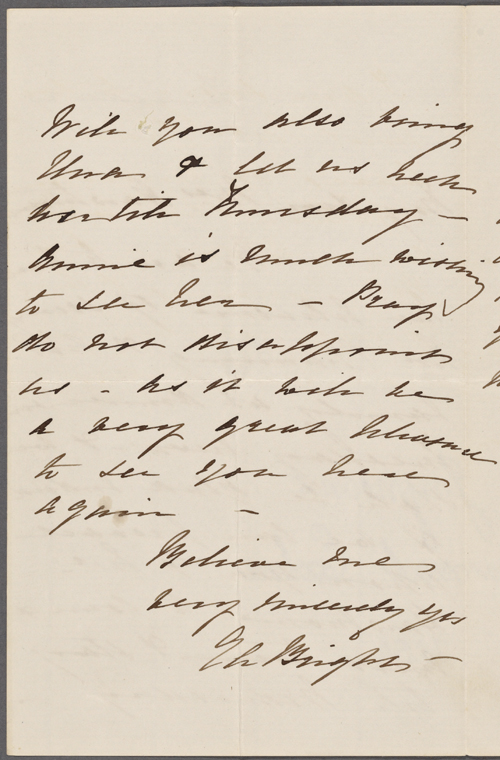 Will you also bring
Una & let us keep
her till Thursday —
Annie is much wishing
to see her — Pray
do not disappoint
us - as it will be
a very great pleasure
to see you here
again —
Believe me
very sincerely yrs
Bright —